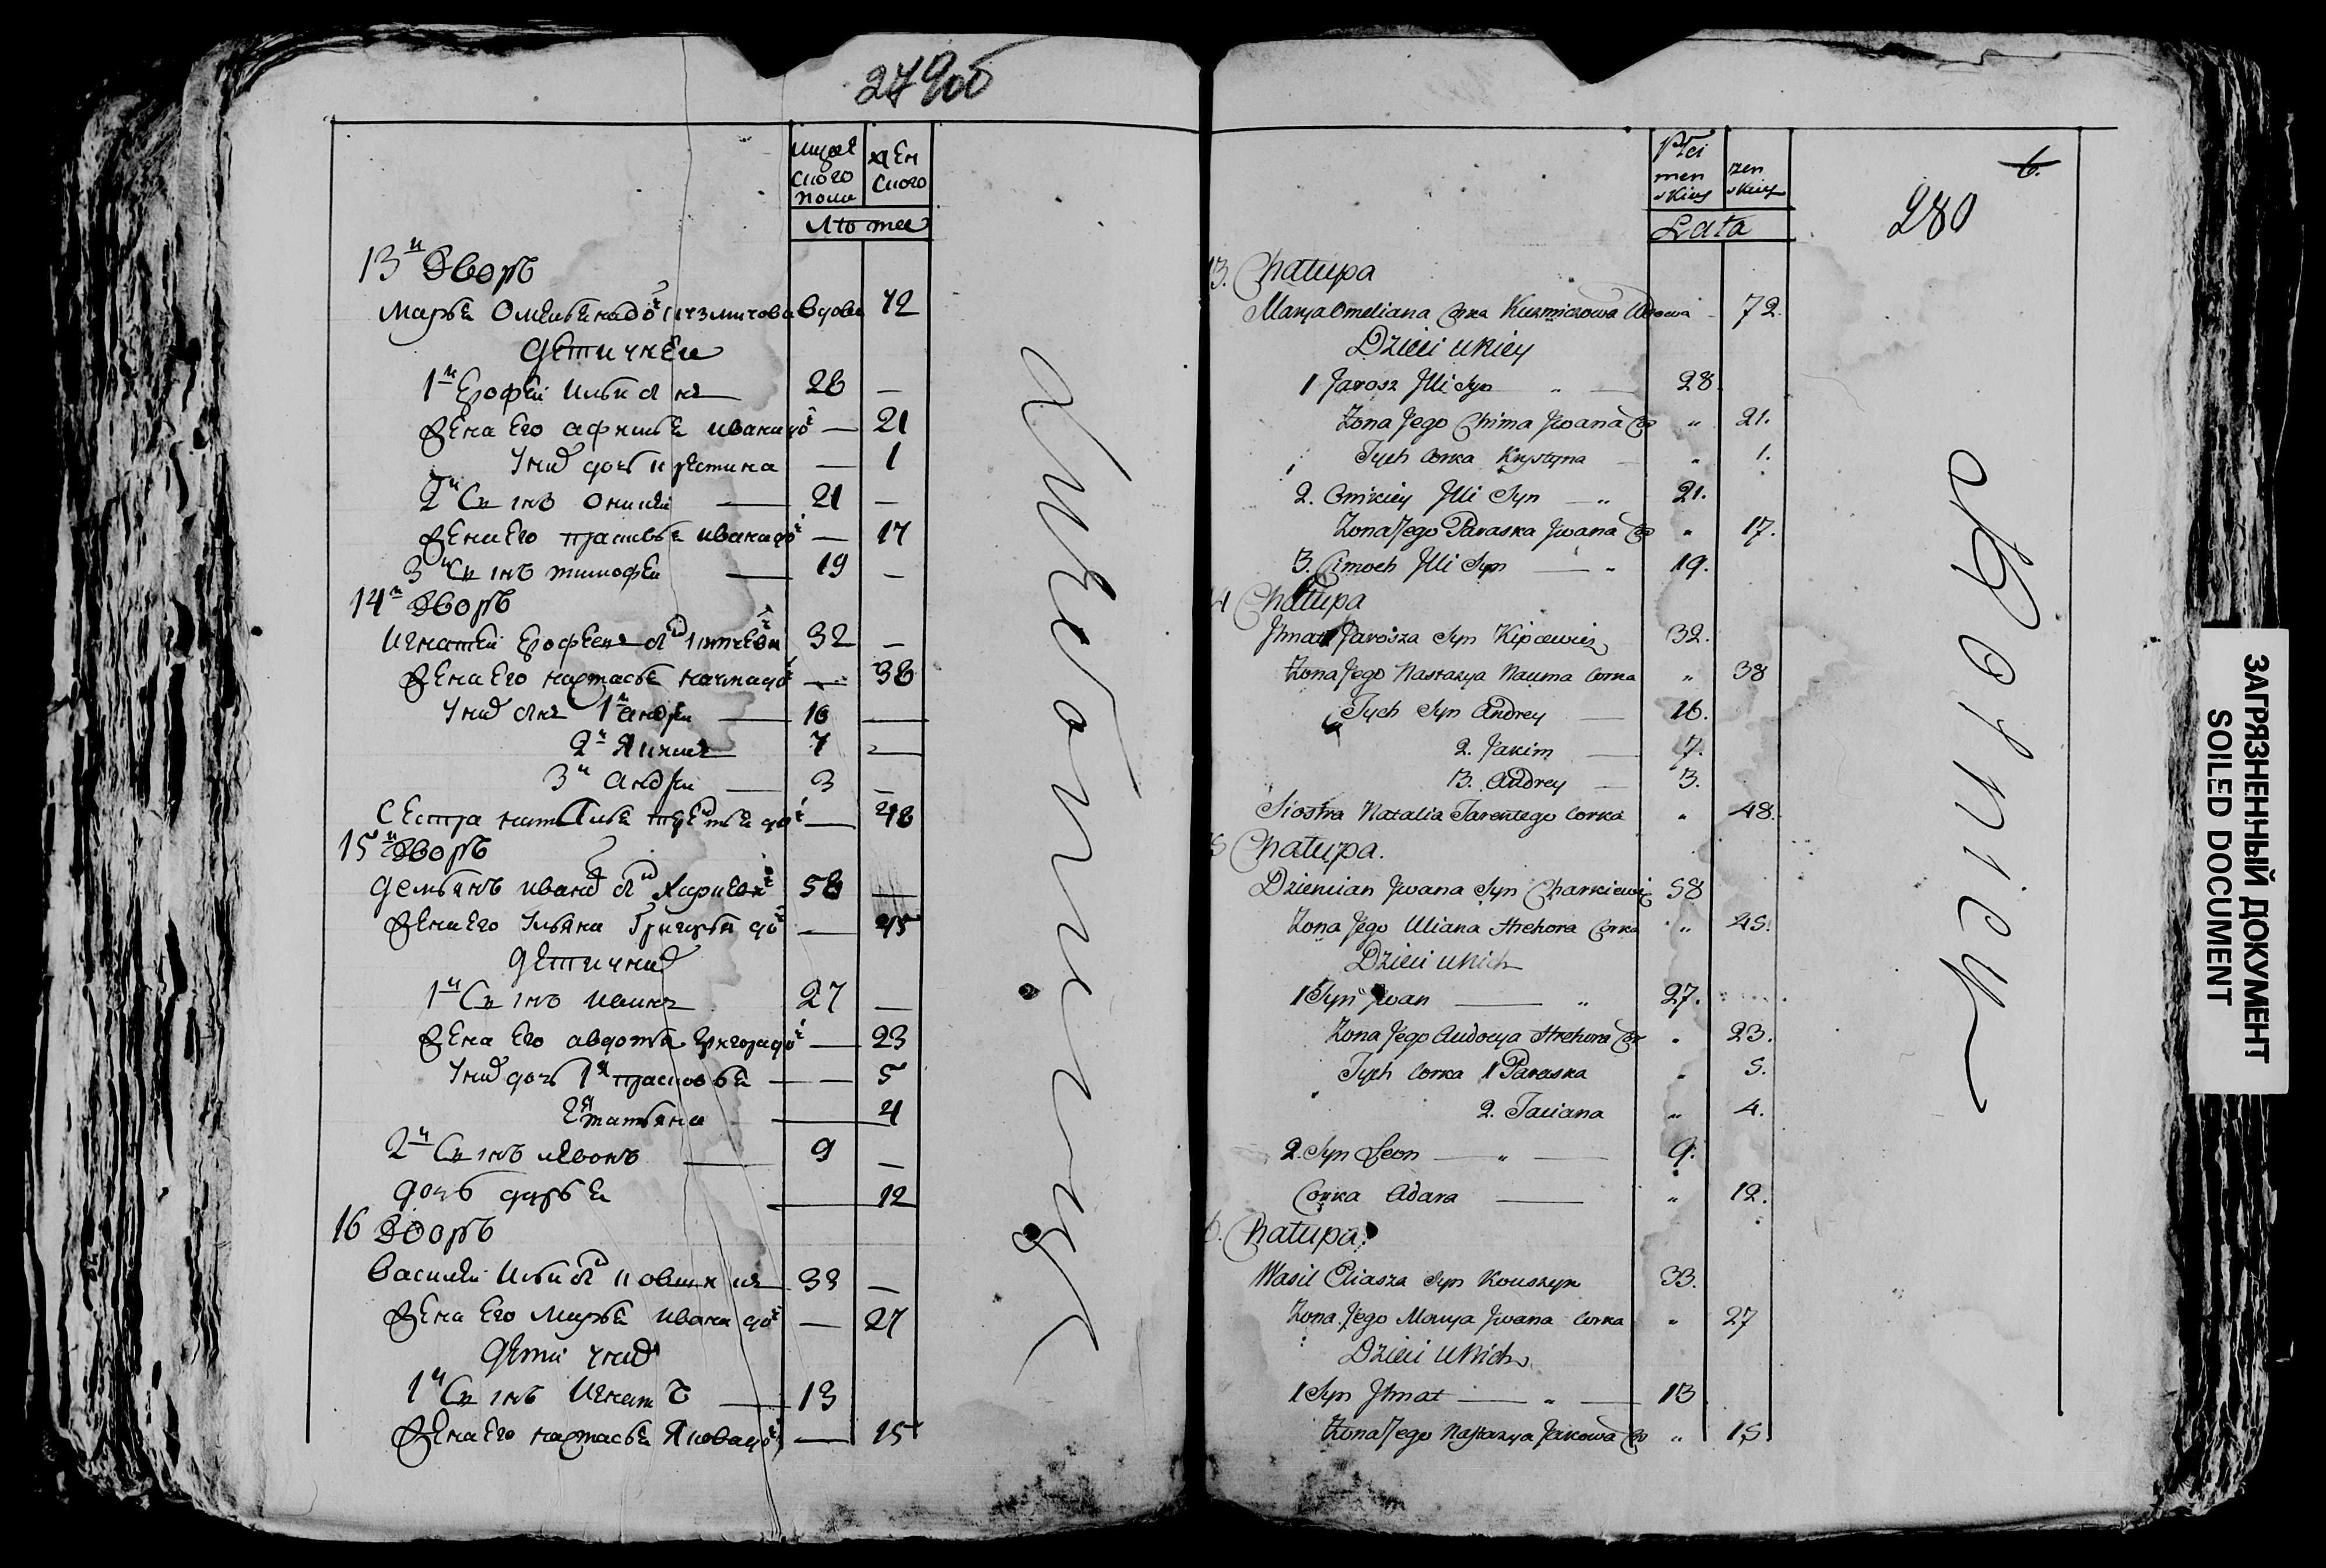 279об
мужеска пола
женска
Лѣта
13й Дворъ
Марья Омельянадоч кузмичова вдова 72
Дети у нея
1й Ерофей Ильи сынъ 28 —
жена его афимья ивана доч — 21
у них дочь кристина — 1
2й Сынъ Оникей — 21 —
жена его прасковья ивана доч — 17
3й Сынъ тимофей — 19 —
14й Дворъ
Игнатей Ерофеев сынъ 32 —
жена его настасья наума доч — 38
у них сын 1й андрей — 16 —
2й Яким 7 —
3й андрей — 3 —
Сестра наталья терентья доч — 48
15й Дворъ
Демьянъ ивана сын Харкевич 58 —
жена его ульяна Григорья доч — 45
Дети у них
1й Сынъ иван 27 —
жена его авдотья григора доч — 23
у них дочь 1я прасковья — — 5
2я татьяна — 4
2й Сынъ левонъ — 9 —
дочь дарья — 12
16 Дворъ
Василей Ильи сын ковшик 33 —
жена его Марья ивана доч — 27
Дети у них
1й Сынъ Игнатъ — 13
жена его настасья Якова доч — 15
Płci
men
skiey
zen
skiey
Lata
6.
280
13. Chałupa
Marya Omeliana Crka Kuzmiczowa Wdowa 72.
Dzieci u Niey
1 Jarosz Illi Syn „ — 28.
Zona Jego Chima Jwana Co „ 21.
Tych Corka Krystyna — „ 1.
2. Onikiey Illi Syn — „ 21.
Zona Jego Paraska Jwana Co „ 17.
3. Cimoch Illi Syn — „ 19.
14 Chałupa
Jhnat Jarosza Syn Kipcewicz 32.
Zona Jego Nastazya Nauma Corka „ 38
Tych Syn Andrey — 16.
2. Jakim — 7.
3. Andrey — 3.
Siostra Natalia Tarentego Corka „ 48.
15 Chałupa.
Dziemian Jwana Syn Charkiewicz 58
Zona Jego Uliana Hrehora Corka „ 45.
Dzieci u Nich
1 Syn Jwan — „ 27.
Zona Jego Audocya Hrehora Cor „ 23.
Tych Corka 1 Paraska „ 5.
2. Taciana „ 4.
2. Syn Leon — „ — 9.
Corka Adara — „ 12.
16. Chałupa.
Wasil Eliasza Syn Kouszyk 33.
Zona Jego Marya Jwana Corka „ 27
Dzieci u Nich
1 Syn Jhnat — „ — 13
Zona Jego Nastazya Jakowa Co „ 15
ЗАГРЯЗНЕННЫЙ ДОКУМЕНТ
SOILED DOCUMENT